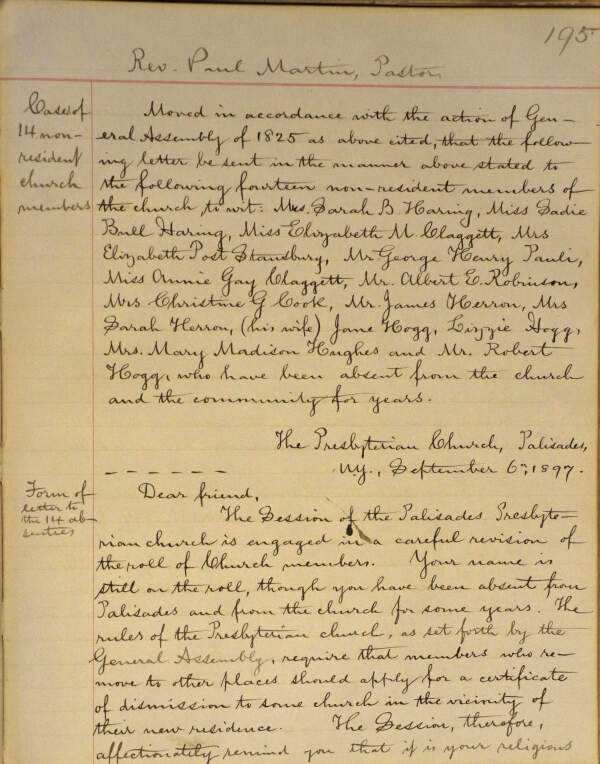 195
Rev. Paul Martin, Pastor,
Case of
14 non-
resident
church
members
Moved in accordance with the action of Gen-
eral Assembly of 1825 as above cited, that the follow-
ing letter be sent in the manner above stated to
the following fourteen non-resident members of
the church, to wit: Mrs. Sarah B. Haring, Miss Sadie
Bull Haring, Miss Elizabeth M. Claggett, Mrs
Elizabeth Post Stansbury, Mr George Henry Pauli,
Miss Annie Gay Claggett, Mr. Albert E. Robinson,
Mrs Christine G Cook, Mr. James Herron, Mrs
Sarah Herron, (his wife) Jane Hogg, Lizzie Hogg,
Mrs. Mary Madison Hughes and Mr. Robert
Hogg, who have been absent from the church
and the community for years.
The Presbyterian Church, Palisades,
N.Y., September 6", 1897.
Form of
letter to
the 14 ab-
sentees
Dear friend,
The Session of the Palisades Presbyte-
rian church is engaged in a careful revision of
the roll of Church members. Your name is
still on the roll, though you have been absent from
Palisades and from the church for some years. The
rules of the Presbyterian church, as set forth by the
General Assembly, require that members who re-
move to other places should apply for a certificate
of dismission to some church in the vicinity of
their new residence. The Session, therefore,
affectionately remind you that it is your religious